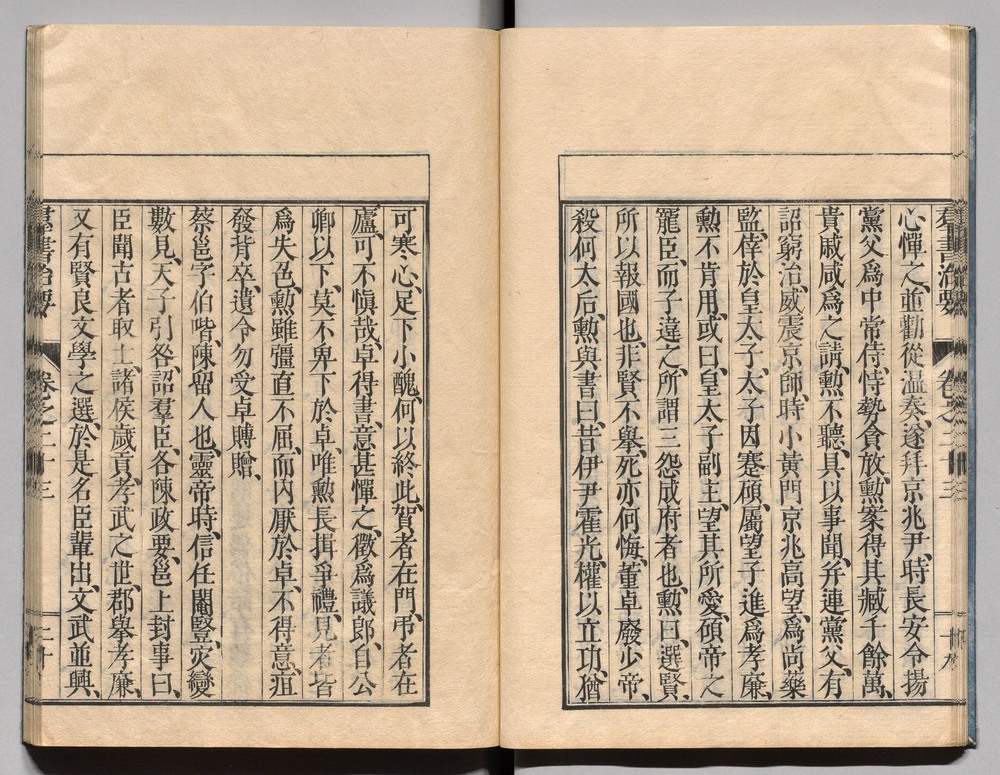 羣書治要 卷之二十三 十九
心憚之、並勸從温奏、遂拜京兆尹、時長安令揚
黨父爲中常侍、恃勢貪放、勲案得其臧千餘萬、
貴戚咸爲之請、勲不聽、具以事聞、并連黨父、有
詔窮治、威震京師、時小黃門京兆高望、爲尚藥
監、倖於皇太子、太子因蹇碩、屬望子進爲孝廉、
勲不肯用、或曰、皇太子副主、望其所愛、碩帝之
寵臣、而子違之、所謂三怨成府者也、勲曰、選賢、
所以報國也、非賢不舉、死亦何悔、董卓廢少帝、
殺何太后、勲與書曰、昔伊尹霍光、權以立功、猶
可寒心、足下小醜、何以終此、賀者在門、弔者在
廬、可不愼哉、卓得書、意甚憚之、徵爲議郎、自公
卿以下、莫不卑下於卓、唯勲長揖爭禮、見者皆
爲失色、勲雖彊直不屈、而内厭於卓、不得意、疽
發背卒、遺令勿受卓賻贈、
蔡邕字伯喈、陳留人也、靈帝時、信任閹豎、灾變
數見、天子引咎、詔羣臣、各陳政要、邕上封事曰、
臣聞古者取士、諸侯歲貢、孝武之世、郡舉孝廉、
又有賢良文學之選、於是名臣輩出、文武並興、
羣書治要 卷之二十三 二十